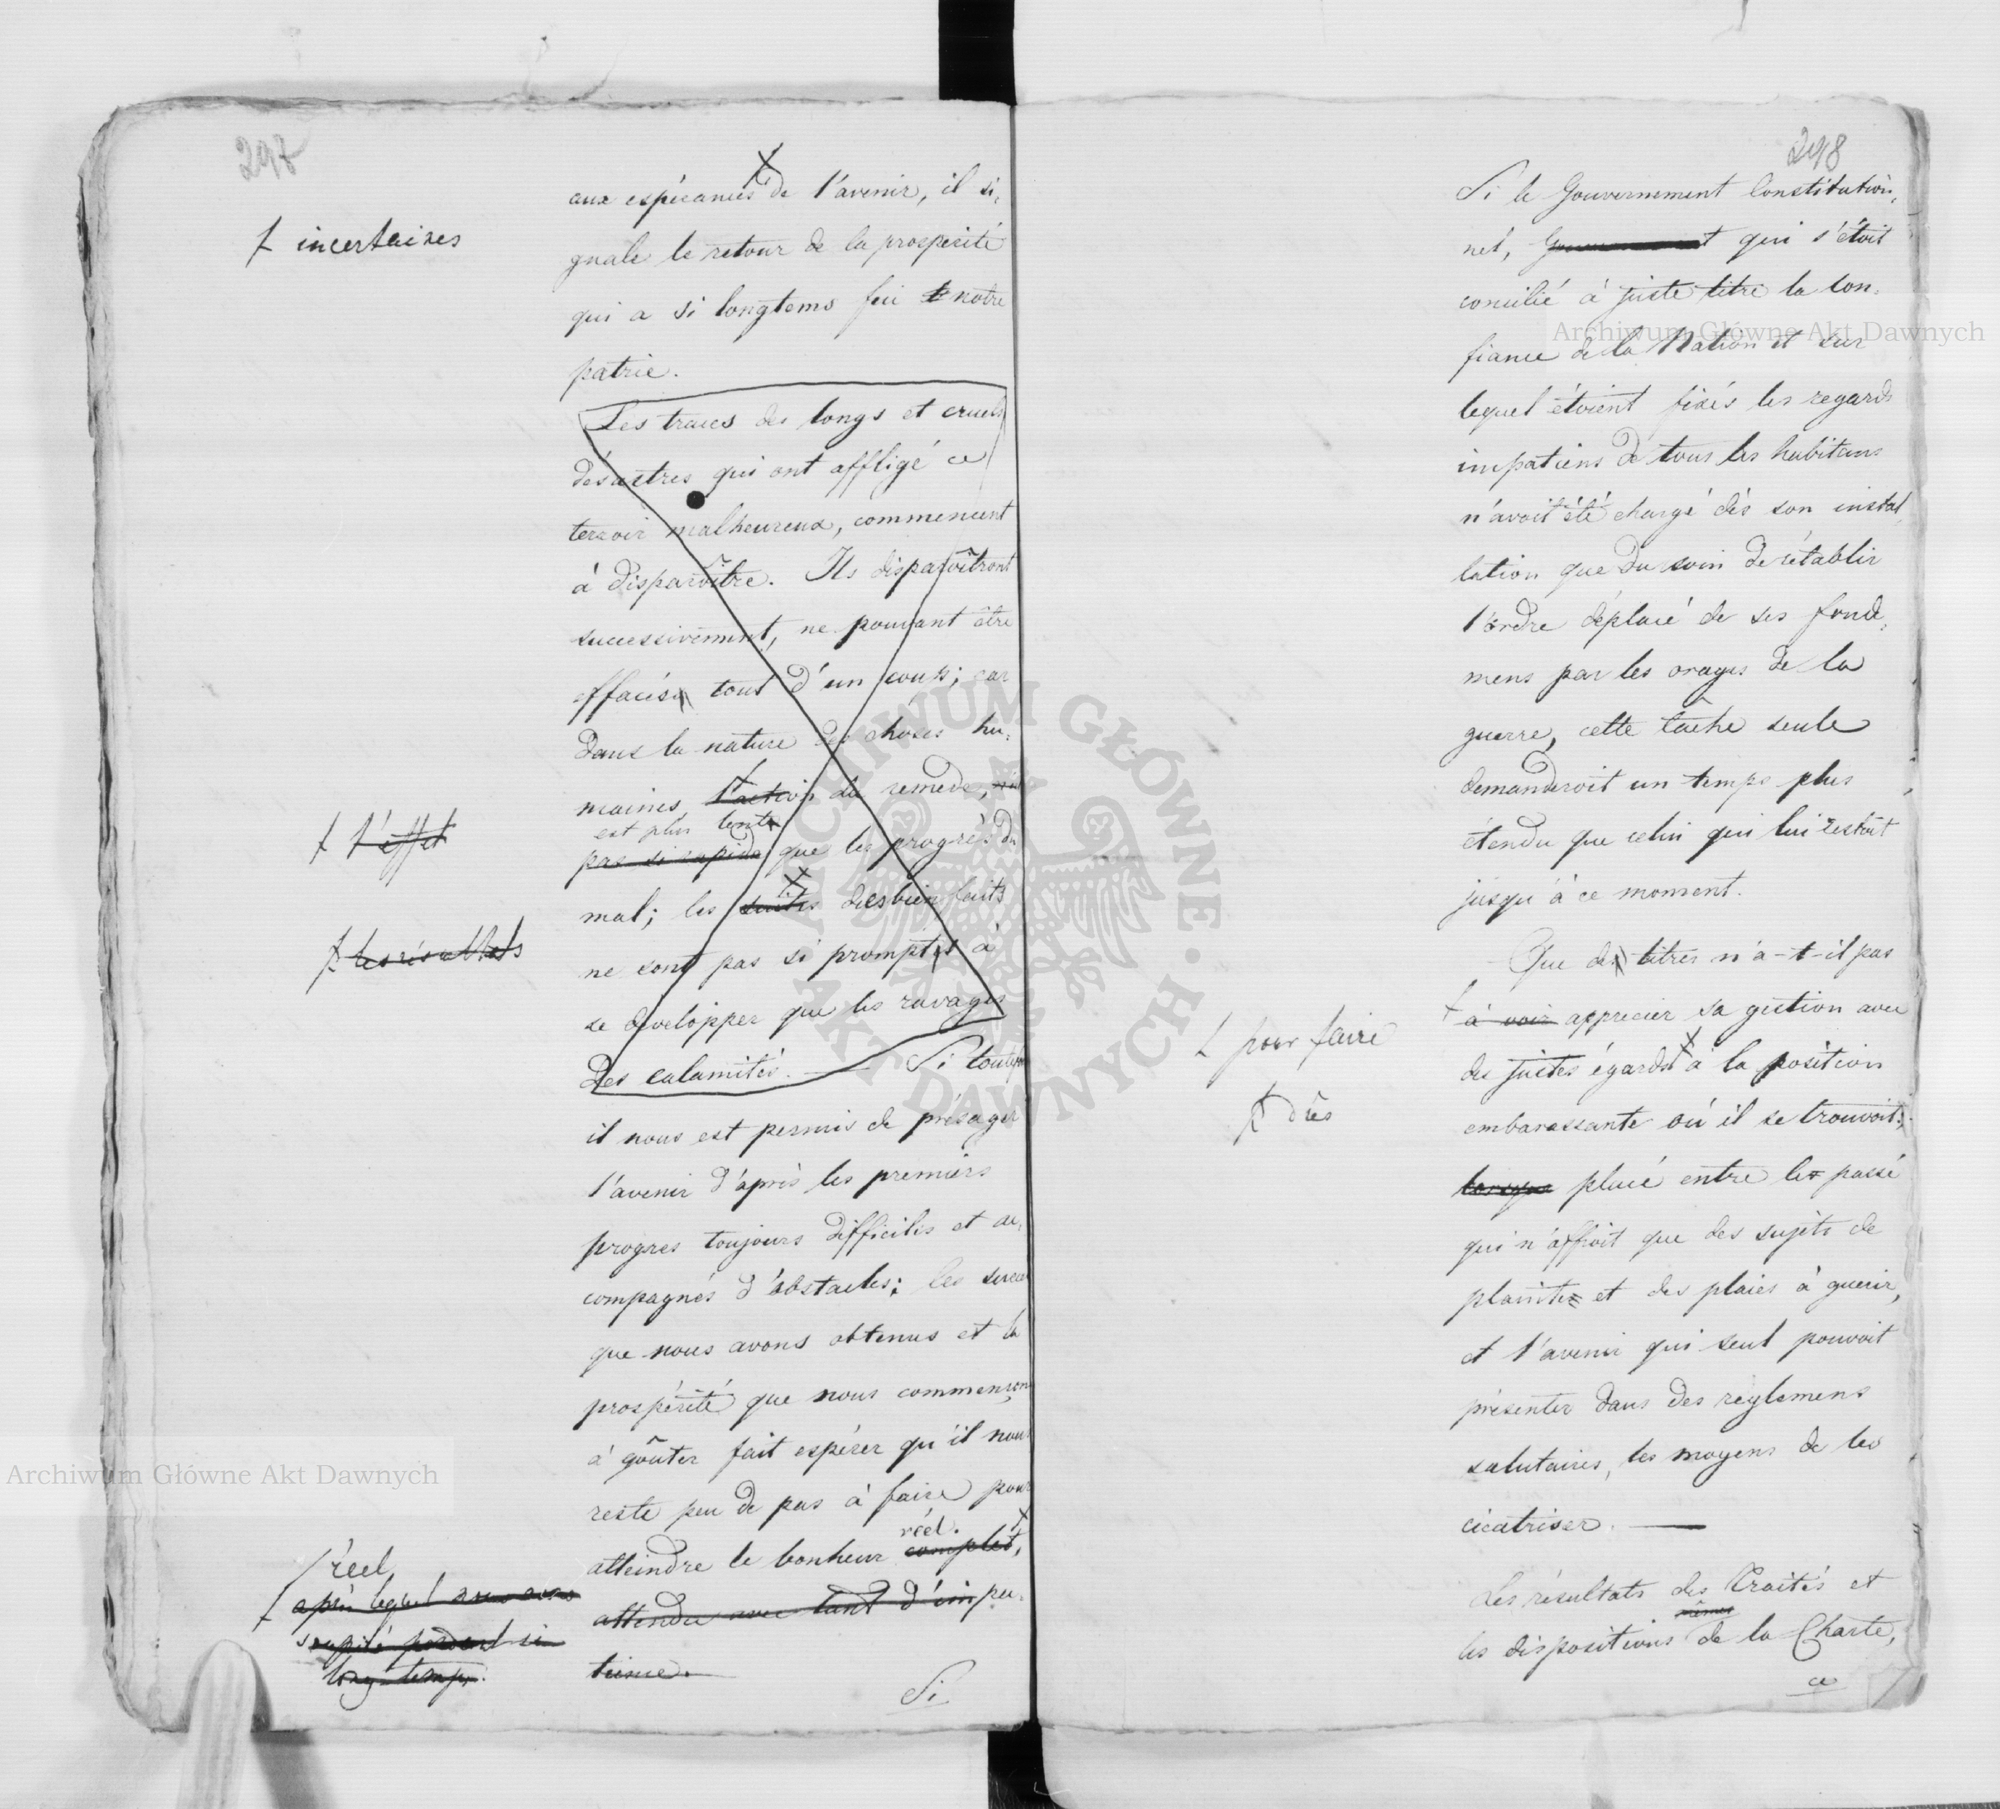 297
aux espérances de l'avenir, il si,
⨍ incertaines
gnale le retour de la prosperité
qui a si longtems fui notre
patrie.
Les traces des longs et cruels
désastres qui ont affligé ce
terroir malheureux, commencent
à disparoître. Ils disparoîtront
successivement, ne pouvant être
effacés tout d'un coup; car
dans la nature des choses hu,
maines, l'action du remede,
⨍ l'effet
est plus lente
pas si rapide que les progrès du
mal; les suites des bienfaits
⨍ les résultats
ne sont pas si prompts à
se developper que les ravages
des calamités. — Si toutefois
il nous est permis de présager
l'avenir d'après les premiers
progres toujours difficiles et ac,
compagnés d'obstacles; les succès
que nous avons obtenus et la
prospérité que nous commençons
à goûter fait espérer qu'il nous
reste peu de pas à faire pour
réel.
atteindre le bonheur complet,
/ réel
⨍ après lequel nous avons
soupiré pendant si
long-temps.
attendu avec tant d'impa,
tience.
Si
298
Si le Gouvernement Constitution,
nel, Gouvernement qui s'étoit
concilié à juste titre la con,
fiance de la Nation et sur
lequel étoient fixés les regards
impatiens de tous les habitans
n'avoit été chargé dès son instal,
lation que du soin de rétablir
l'ordre déplacé de ses fonde,
mens par les orages de la
guerre, cette tâche seule
demanderoit un temps plus
étendu que celui qui lui restoit
jusqu'à ce moment.
Que de titres n'a-t-il pas
à voir apprecier sa gestion avec
⨍ pour faire
des justes égards à la position
⨍ dûs
embarassante où il se trouvoit;
lorsque placé entre le passé
qui n'offroit que des sujets de
plainte et des plaies à guerir,
et l'avenir qui seul pouvoit
présenter dans des reglemens
salutaires, les moyens de les
cicatriser. —
Les résultats des Traités et
mêmes
les dispositions de la Charte,
ce
Archiwum Główne Akt Dawnych
Archiwum Główne Akt Dawnych
ARCHIWUM GŁÓWNE • AKT DAWNYCH •